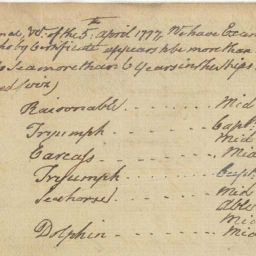 of the 5th april 1777 We have Exam
by Certificate appears to be more than
Sea more than 6 Years in the Ships
Raisonable - - - Mid
Tryumph - - - Capt
Mid
Carcass - - - Mid
Tryumph - - - Capt
Seahorse - - - Mid
Able
Mid
Dolphin - - - Mid